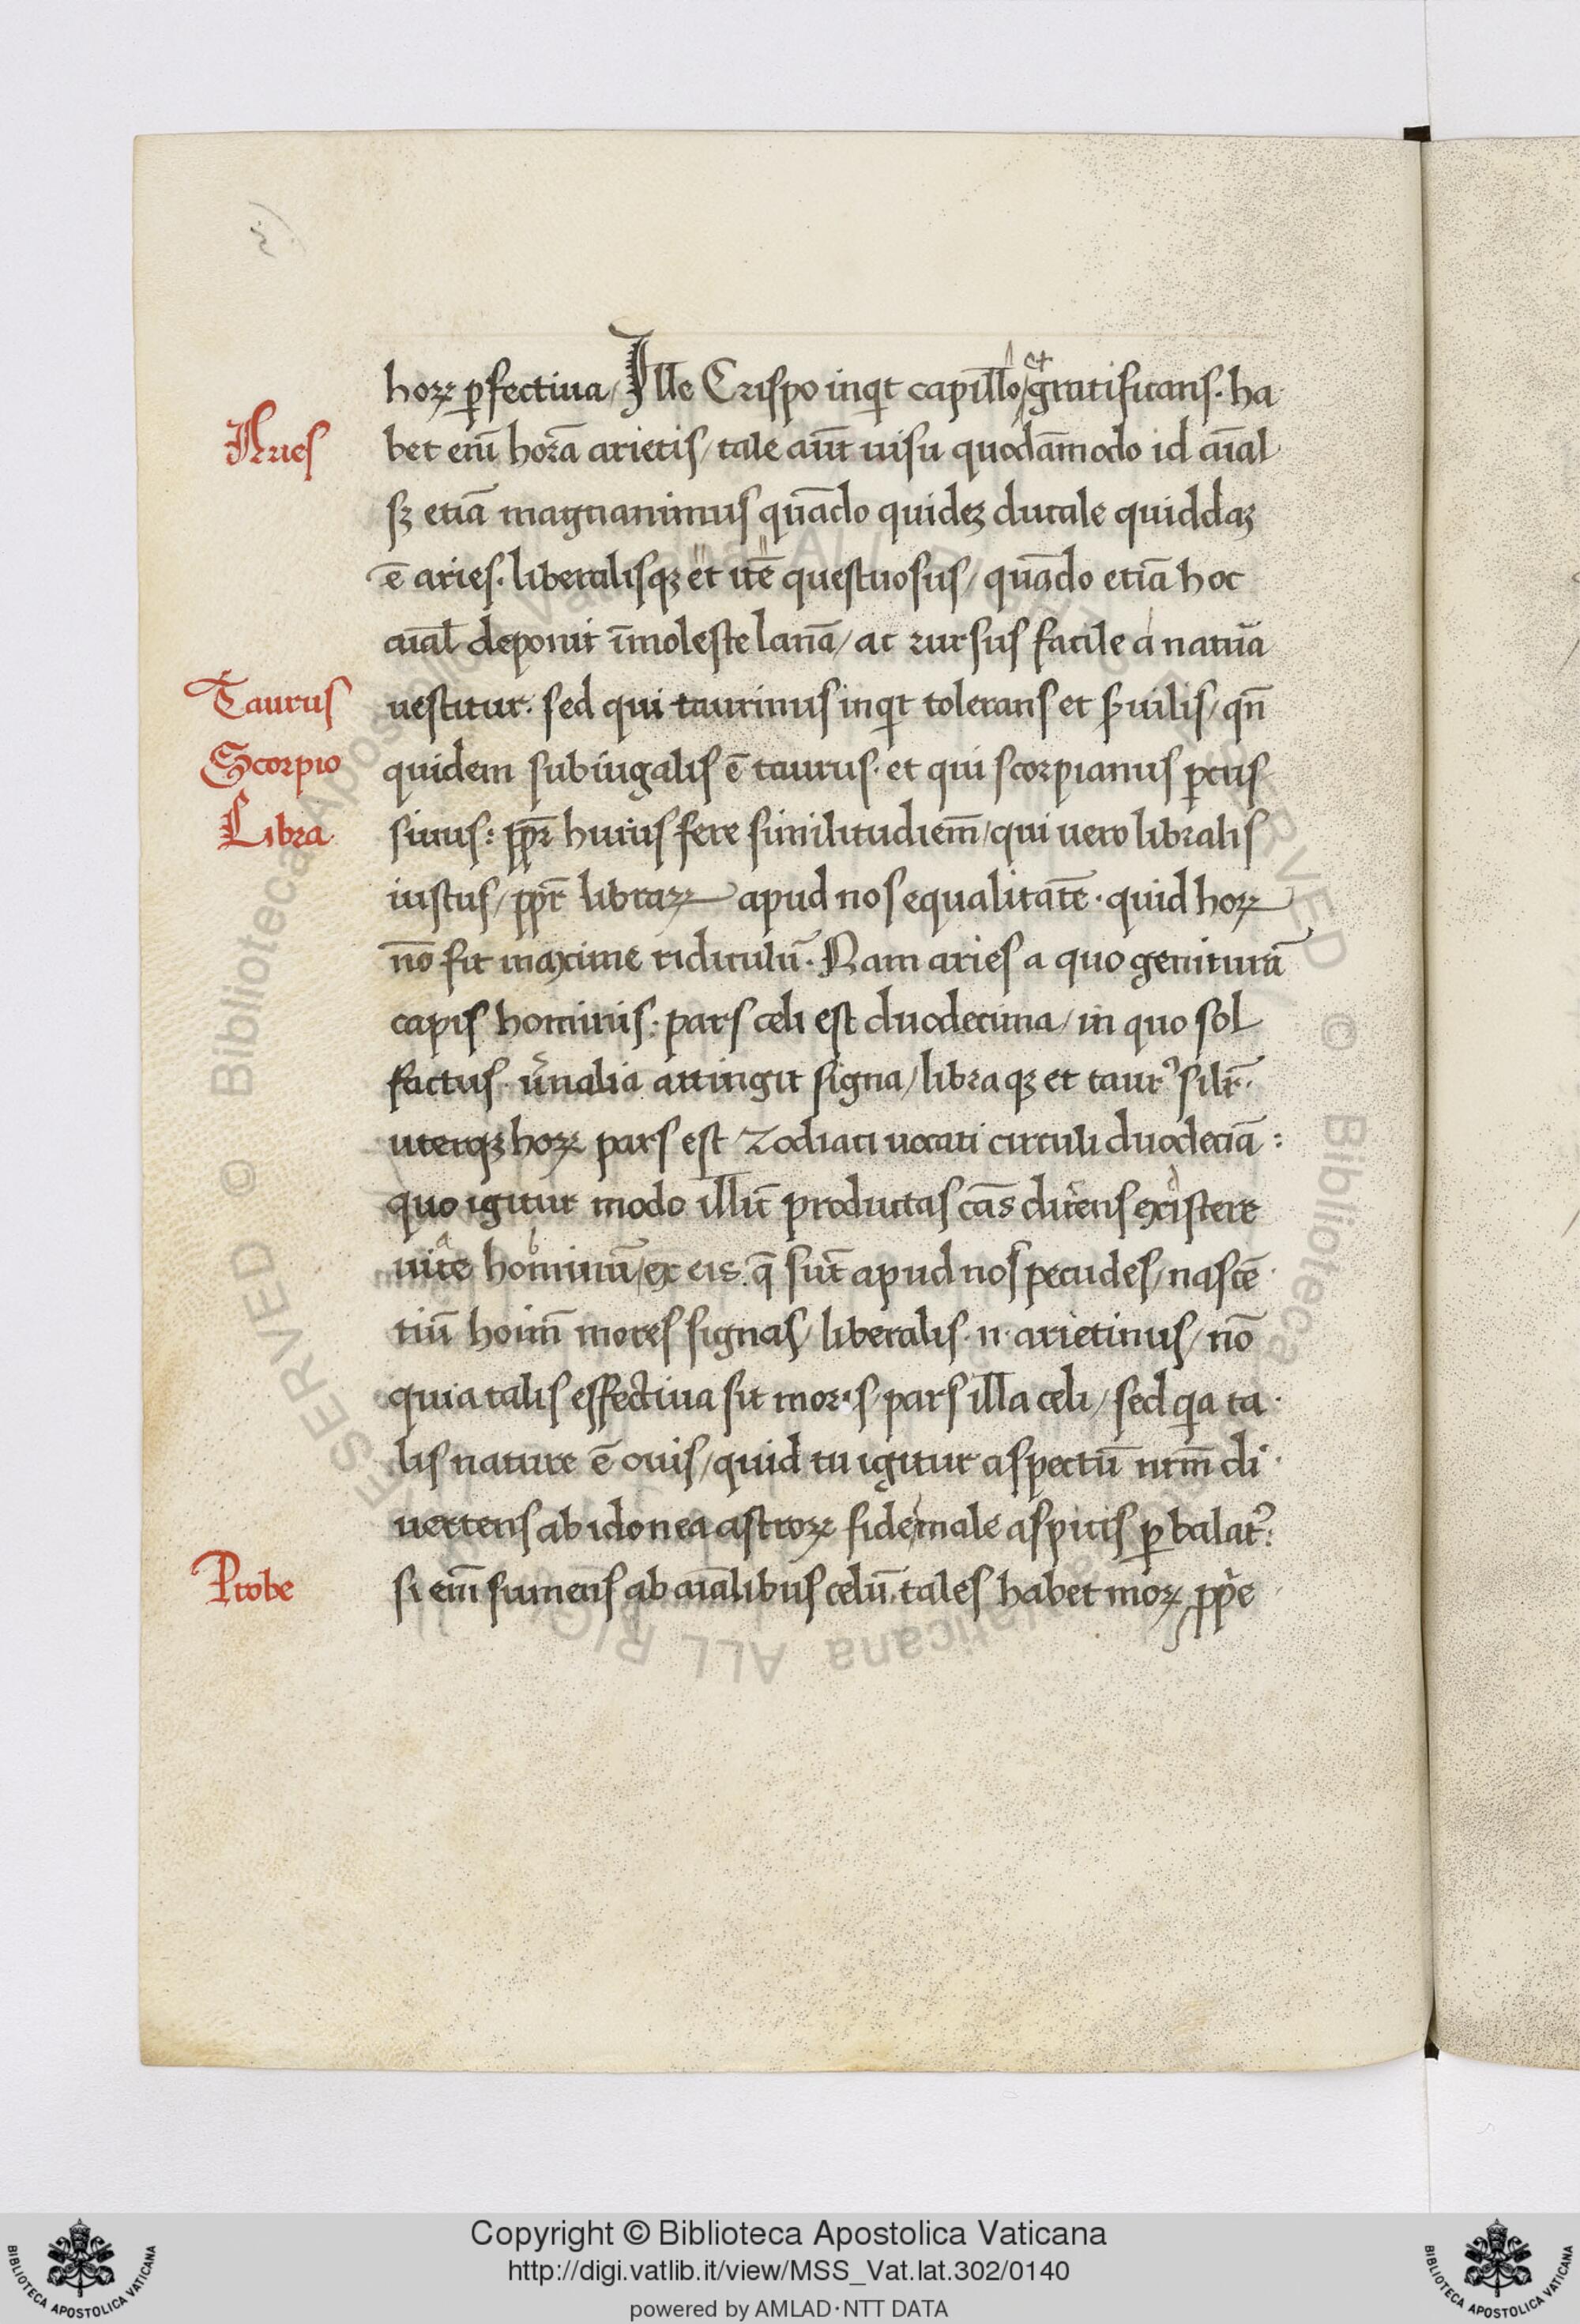 hoꝝ ꝑfectiua/ Ille Crispo inqͥt capillo/ et gratificans. ha
Aries
bet eniʒ horā arietis/ tale aiūt uisu quodāmodo id aīal
sꝫ etiā magnanimus quādo quideꝫ ducale quiddaꝫ
ē aries. liberalisqꝫ et itē questuosus/ quādo etiā hoc
aīal deponit īmoleste lanā/ ac rursus facile a natūa
Taurus
uestitur. sed qui taurinus inqͥt tolerans et ẜuilis/ qn̄
Scorpio
quidem subiugalis ē taurus. et qui scorpianus ꝑcus
Libra
siuus: ꝓpt̄ huius fere similitudiem̄/ qui uero libralis
iustus/ ꝓpt̄ libraꝝ apud nos equalitatē. quid hoꝝ
nō fit maxime ridiculū. Nam aries a quo geniturā
capis hominis: pars celi est duodecima/ in quo sol
factus u̾nalia attingit signa/ libraqꝫ et taurꝰ silr̄.
uterqꝫ hoꝝ pars est Zodiaci uocati circuli duodeciā:
quo igitur modo illīc productas cās dicens existere
uite hominū/ ex eis. q̄ sūt apud nos pecudes/ nascē
tiū hoim̄ mores signas/ liberalis. n. arietinus/ nō
quia talis effectiua sit moris/ pars illa celi/ sed qͥa ta
lis nature ē ouis/ quid tu igitur aspectū nr̄m di
uertens ab idonea astroꝝ fide/ male aspicis ꝑ balatꝰ:
Probe
si eīm sumens ab aīalibus celū/ tales habet moꝝ/ ꝓpͥe
Copyright © Biblioteca Apostolica Vaticana
http://digi.vatlib.it/view/MSS_Vat.lat.302/0140
powered by AMLAD·NTT DATA
BIBLIOTECA APOSTOLICA VATICANA
BIBLIOTECA APOSTOLICA VATICANA